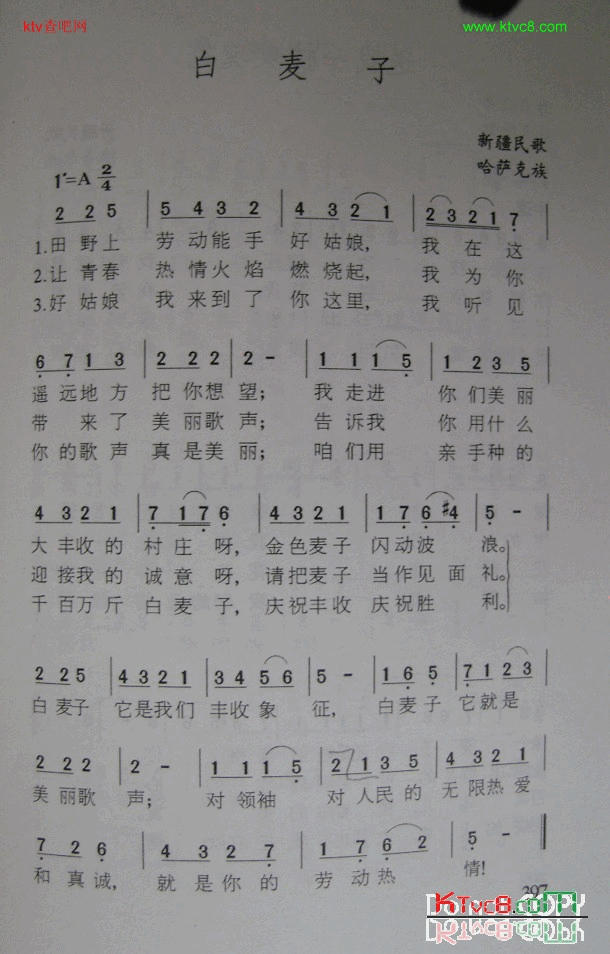 ktv查吧网
www.ktvc8.com
白麦子
新疆民歌
哈萨克族
1=A 2/4
2 2 5 5 4 3 2 4 3 2 1 2 3 2 1 7
1.田野上 劳动能手 好姑娘, 我在这
2.让青春 热情火焰 燃烧起, 我为你
3.好姑娘 我来到了 你这里, 我听见
6 7 1 3 2 2 2 2 - 1 1 1 5 1 2 3 5
遥远地方 把你想望; 我走进 你们美丽
带来了 美丽歌声; 告诉我 你用什么
你的歌声 真是美丽; 咱们用 亲手种的
4 3 2 1 7 1 7 6 4 3 2 1 1 7 6 #4 5 -
大丰收的 村庄呀, 金色麦子 闪动波浪。
迎接我的 诚意呀, 请把麦子 当作见面礼。
千百万斤 白麦子, 庆祝丰收 庆祝胜利。
2 2 5 4 3 2 1 3 4 5 6 5 - 1 6 5 7 1 2 3
白麦子 它是我们 丰收象征, 白麦子 它就是
2 2 2 2 - 1 1 1 5 2 1 3 5 4 3 2 1
美丽歌声; 对领袖 对人民的 无限热爱
7 2 6 4 3 2 7 1 7 6 5 -
和真诚, 就是你的 劳动热情!
297
KTvc8.com